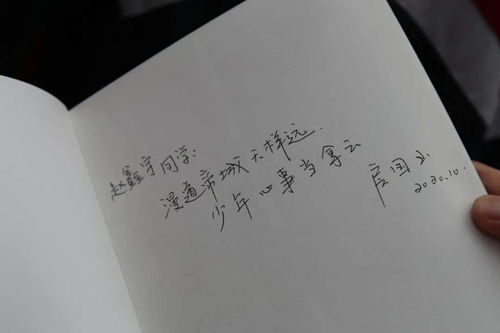 赵鑫宇同学:
漫道帝城天样远.
少年心事当拿云
2020.10.